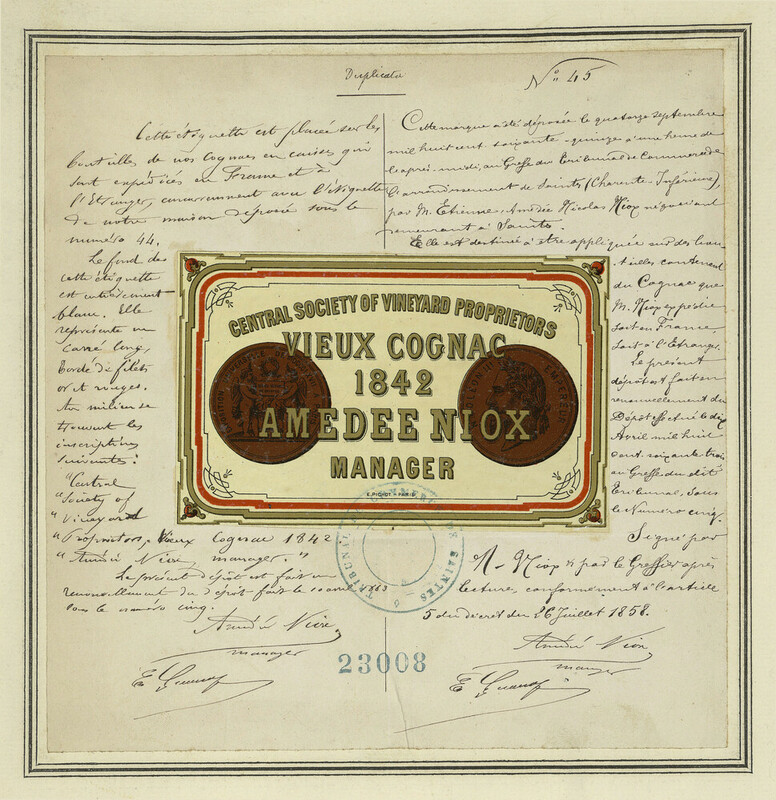 Duplicata
N° 45
Cette étiquette est placée sur les
bouteilles de nos cognacs en caisses qui
sont expédiés en France et à
l'Etranger, concurremment avec l'étiquette
de notre maison déposée sous le
numéro 44.
Le fond de
cette étiquette
est entièrement
blanc. Elle
représente un
carré long,
bordé de filets
or et rouges.
Au milieu se
trouvent les
inscriptions
suivantes:
"Central
"Society of
"Vineyard
"Proprietors, Vieux Cognac 1842
"Amédée Niox, manager."
Le présent dépôt est fait en
renouvellement du dépôt fait le 10 avril 1863
sous le numéro cinq.
Amédée Niox
manager
Cette marque a été déposée le quatorze septembre
mil huit cent soixante-quinze à une heure de
l'après-midi, au Greffe du Tribunal de Commerce de
l'arrondissement de Saintes (Charente-Inférieure),
par M. Etienne-Amédée Nicolas Niox négociant
demeurant à Saintes.
Elle est destinée à être appliquée sur des bou-
teilles contenant
du Cognac que
M. Niox expédie
soit en France,
soit à l'Etranger.
Le présent
dépôt est fait en
renouvellement du
Dépôt effectué le dix
Avril mil huit
cent soixante trois
au Greffe du dit
Tribunal, sous
le Numéro cinq.
Signé par
M. Niox & par le Greffier après
lecture, conformément à l'article
5 du décret du 26 Juillet 1858.
Amédée Niox
manager
CENTRAL SOCIETY OF VINEYARD PROPRIETORS
VIEUX COGNAC
1842
AMEDEE NIOX
MANAGER
E. PICHOT - PARIS
NAPOLEON III EMPEREUR
TRIBUNAL DE COMMERCE DE SAINTES
23008